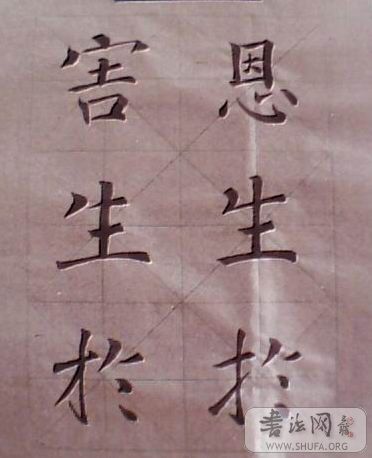 恩生於
害生於
書法网
WWW.SHUFA.ORG